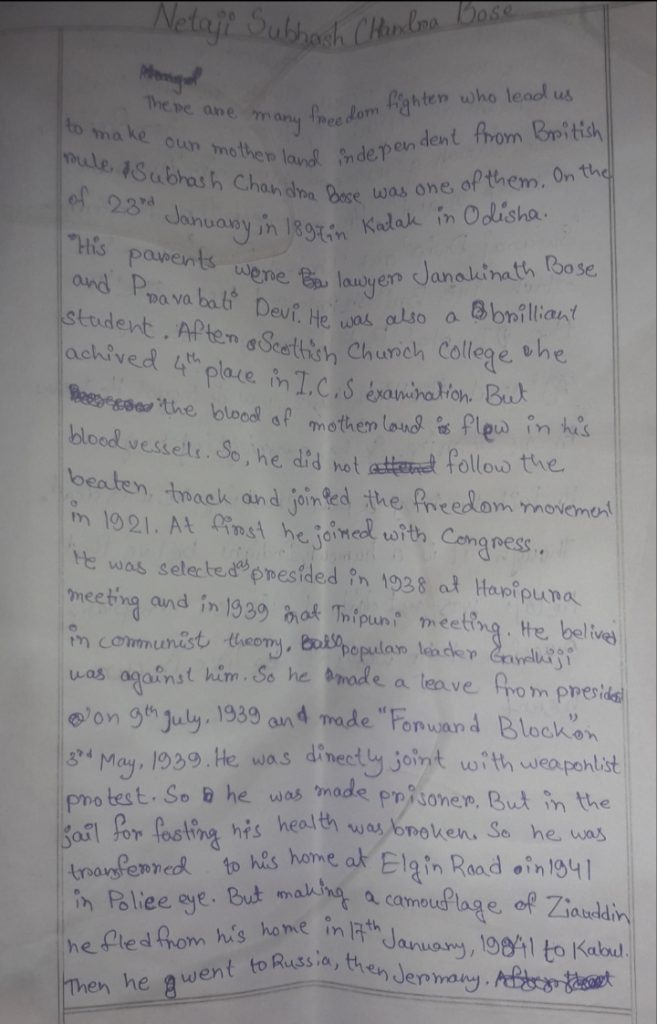 Netaji Subhash Chandra Bose
There are many freedom fighter who lead us
to make our mother land independent from British
rule, Subhash Chandra Bose was one of them. On the
of 23rd January in 1897 in Katak in Odisha.
His parents were lawyer Janakinath Bose
and Pravabati Devi. He was also a brilliant
student. After Scottish Church College he
achived 4th place in I.C.S examination. But
the blood of motherland is flow in his
bloodvessels. So, he did not attend follow the
beaten track and joined the freedom movement
in 1921. At first he joined with Congress.
He was selected as presided in 1938 at Haripura
meeting and in 1939 in at Tripuri meeting. He belives
in communist theory. popular leader Gandhiji
was against him. So he made a leave from president
on 9th July, 1939 and made "Forward Block" on
3rd May, 1939. He was directly joint with weaponlist
protest. So he was made prisoner. But in the
jail for fasting his health was broken. So he was
transferred to his home at Elgin Road in 1941
in Police eye. But making a camouflage of Ziauddin
he fled from his home in 17th January, 1941 to Kabul.
Then he went to Russia, then Jermany.